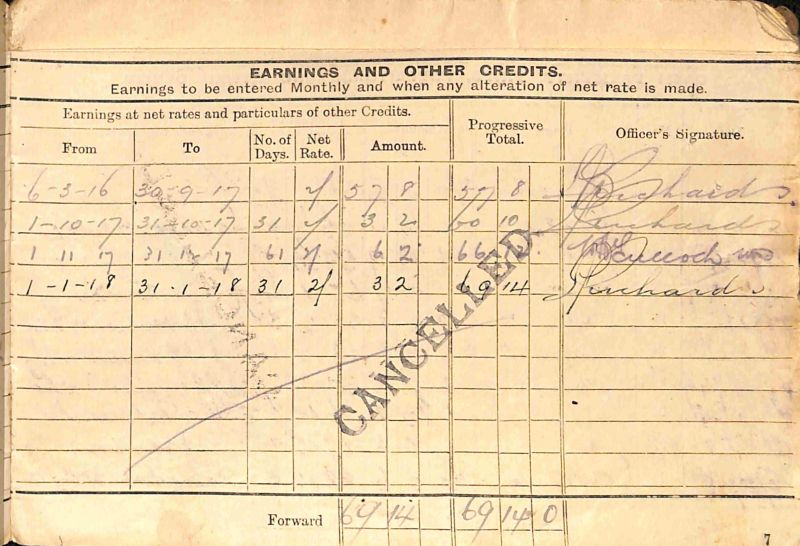 EARNINGS AND OTHER CREDITS.
Earnings to be entered Monthly and when any alteration of net rate is made.
Earnings at net rates and particulars of other Credits.
Progressive Total.
Officer's Signature.
From To No. of Days. Net Rate. Amount.
6-3-16 30-9-17 2/ 57 8 57 8
1-10-17 31-10-17 31 2/ 3 2 60 10
1 11 17 17 61 2/ 6 2 66
1-1-18 31-1-18 31 2/ 3 2 69 14
CANCELLED
Forward 69 14 69 14 0
7